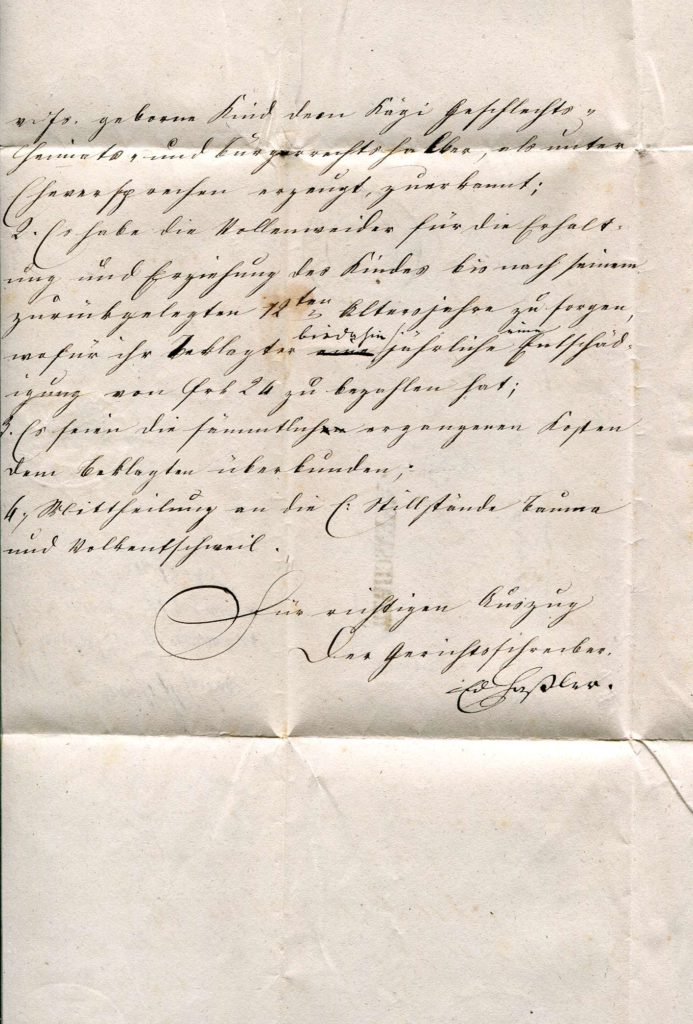 v. Js. geborne Kind dem Kägi Geschlechts-
Heimats- und bürgerrechtshalber, als unter
Eheversprechen erzeugt, zuerkannt;
2. Es habe die Vollenweider für die Erhalt-
ung und Erziehung des Kindes bis nach seinem
zurückgelegten 12ten Altersjahre zu sorgen,
wofür ihr Beklagter bis dahin eine
jährliche Entschäd-
igung von frk 24 zu bezahlen hat;
3. Es seien die sämmtlichen ergangenen Kosten
dem Beklagten überbunden;
4, Mittheilung an die E: Stillstände Bauma
und Volkentschweil.
Für richtigen Auszug
Der Gerichtsschreiber.
Ed Haßler.